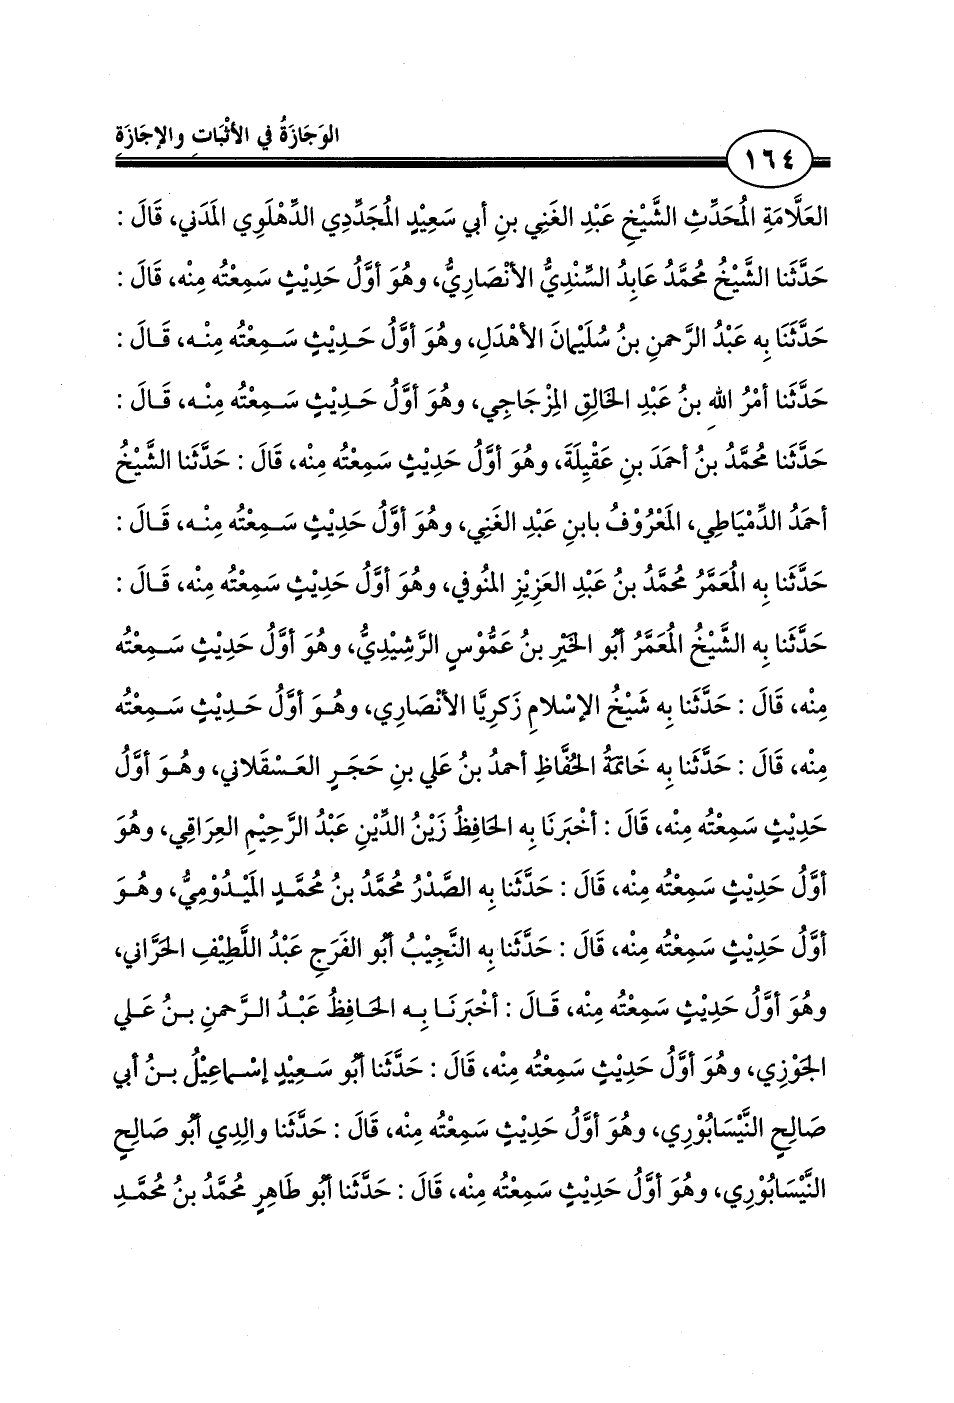 الوَجَازَةُ في الأثْبَاتِ والإجَازَةِ
١٦٤
العَلَّامَةِ المُحَدِّثِ الشَّيْخِ عَبْدِ الغَنِي بنِ أبي سَعِيْدٍ المُجَدِّدِي الدِّهْلَوِي المَدَني، قَالَ :
حَدَّثَنا الشَّيْخُ مُحَمَّدُ عَابِدُ السِّنْدِيُّ الأنْصَارِيُّ، وهُوَ أوَّلُ حَدِيْثٍ سَمِعْتُه مِنْه، قَالَ :
حَدَّثَنَا بِه عَبْدُ الرَّحمنِ بنُ سُلَيْمَانَ الأهْدَلِ، وهُوَ أوَّلُ حَـدِيْثٍ سَـمِعْتُه مِنْـه، قَـالَ :
حَدَّثَنا أمْرُ الله بنُ عَبْدِ الخَالِقِ المِزْجَاجِي، وهُوَ أوَّلُ حَـدِيْثٍ سَـمِعْتُه مِنْـه، قَـالَ :
حَدَّثَنا مُحمَّدُ بنُ أحمَدَ بنِ عَقِيْلَةَ، وهُوَ أوَّلُ حَدِيْثٍ سَمِعْتُه مِنْه، قَالَ : حَدَّثَنا الشَّيْخُ
أحمَدُ الدِّمْيَاطِي، المَعْرُوْفُ بابنِ عَبْدِ الغَنِي، وهُوَ أوَّلُ حَدِيْثٍ سَـمِعْتُه مِنْـه، قَـالَ :
حَدَّثَنا بِه المُعَمَّرُ مُحمَّدُ بنُ عَبْدِ العَزِيْزِ المنُوفي، وهُوَ أوَّلُ حَدِيْثٍ سَمِعْتُه مِنْه، قَـالَ :
حَدَّثَنا بِه الشَّيْخُ المُعَمَّرُ أبُو الخَيْرِ بنُ عَمُّوْسٍ الرَّشِيْدِيُّ، وهُوَ أوَّلُ حَدِيْثٍ سَـمِعْتُه
مِنْه، قَالَ : حَدَّثَنا بِه شَيْخُ الإسْلامِ زَكَرِيَّا الأنْصَارِي، وهُـوَ أوَّلُ حَـدِيْثٍ سَـمِعْتُه
مِنْه، قَالَ : حَدَّثَنا بِه خَاتمةُ الحُفَّاظِ أحمدُ بنُ عَلي بنِ حَجَـرٍ العَـسْقَلاني، وهُـوَ أوَّلُ
حَدِيْثٍ سَمِعْتُه مِنْه، قَالَ : أخْبَرَنَا بِه الحَافِظُ زَيْنُ الدِّيْنِ عَبْدُ الرَّحِيْمِ العِرَاقِي، وهُوَ
أوَّلُ حَدِيْثٍ سَمِعْتُه مِنْه، قَالَ : حَدَّثَنا بِه الصَّدْرُ مُحَمَّدُ بنُ مُحَمَّـدٍ المَيْـدُوْمِيُّ، وهُـوَ
أوَّلُ حَدِيْثٍ سَمِعْتُه مِنْه، قَالَ : حَدَّثَنا بِه النَّجِيْبُ أبُو الفَرَجِ عَبْدُ اللَّطِيْفِ الحَرَّاني،
وهُوَ أوَّلُ حَدِيْثٍ سَمِعْتُه مِنْه، قَـالَ : أخْبَرَنَـا بِـه الحَـافِظُ عَبْـدُ الـرَّحمنِ بـنُ عَـلي
الجَوْزِي، وهُوَ أوَّلُ حَدِيْثٍ سَمِعْتُه مِنْه، قَالَ : حَدَّثَنا أبُو سَـعِيْدٍ إسْـماعِيْلُ بـنُ أبي
صَالِحٍ النَّيْسَابُوْرِي، وهُوَ أوَّلُ حَدِيْثٍ سَمِعْتُه مِنْه، قَالَ : حَدَّثَنا والِدِي أبُو صَالِحٍ
النَّيْسَابُوْرِي، وهُوَ أوَّلُ حَدِيْثٍ سَمِعْتُه مِنْه، قَالَ : حَدَّثَنا أبُو طَاهِرٍ مُحمَّدُ بنُ مُحمَّـدِ